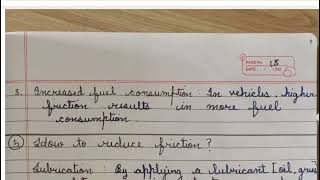 PAGE No. 18
DATE
3. Increased fuel consumption : In vehicles, higher
friction results in more fuel
consumption
5 How to reduce friction ?
Lubrication : By applying a lubricant [oil, grea